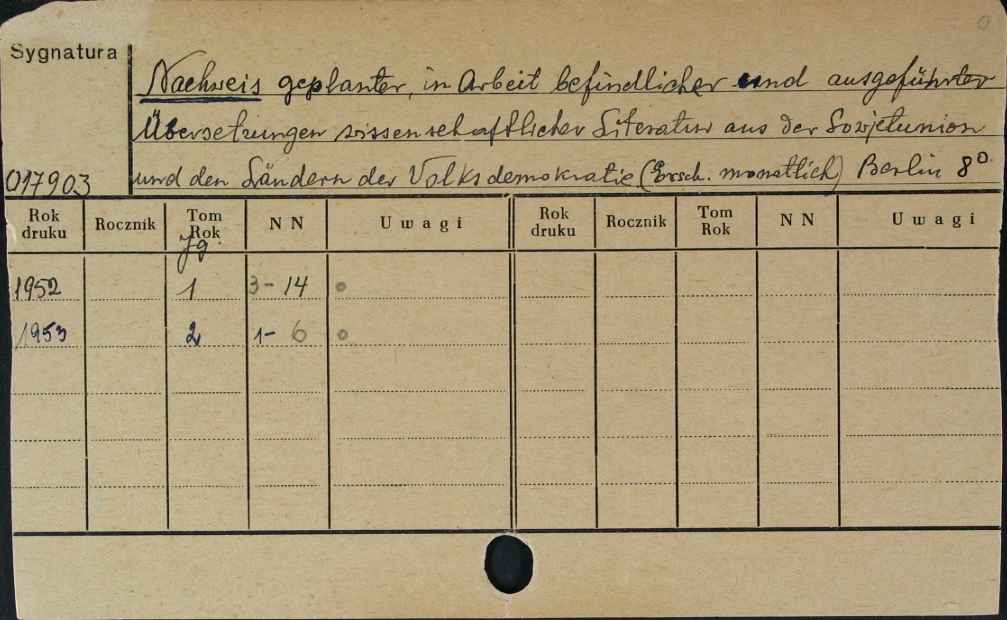 Sygnatura
Nachweis geplanter, in Arbeit befindlicher und ausgeführter
Übersetzungen wissenschaftlicher Literatur aus der Sowjetunion
017903 und den Ländern der Volksdemokratie (Ersch. monatlich) Berlin 8°
Rok druku Rocznik Tom Rok Jg. NN Uwagi Rok druku Rocznik Tom Rok NN Uwagi
1952 1 3-14 o
1953 2 1-6 o